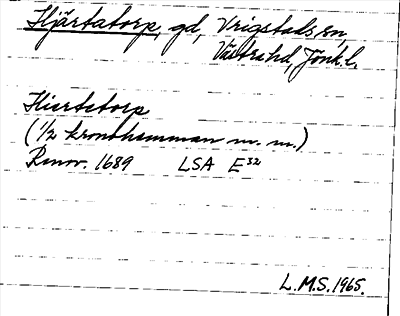 Hjärtatorp, gd, Vrigstads sn,
Västra hd, Jönk. l.
Hiertetorp
(1/2 kronohemman m. m.)
Renov. 1689 LSA E32
L.M.S. 1965.